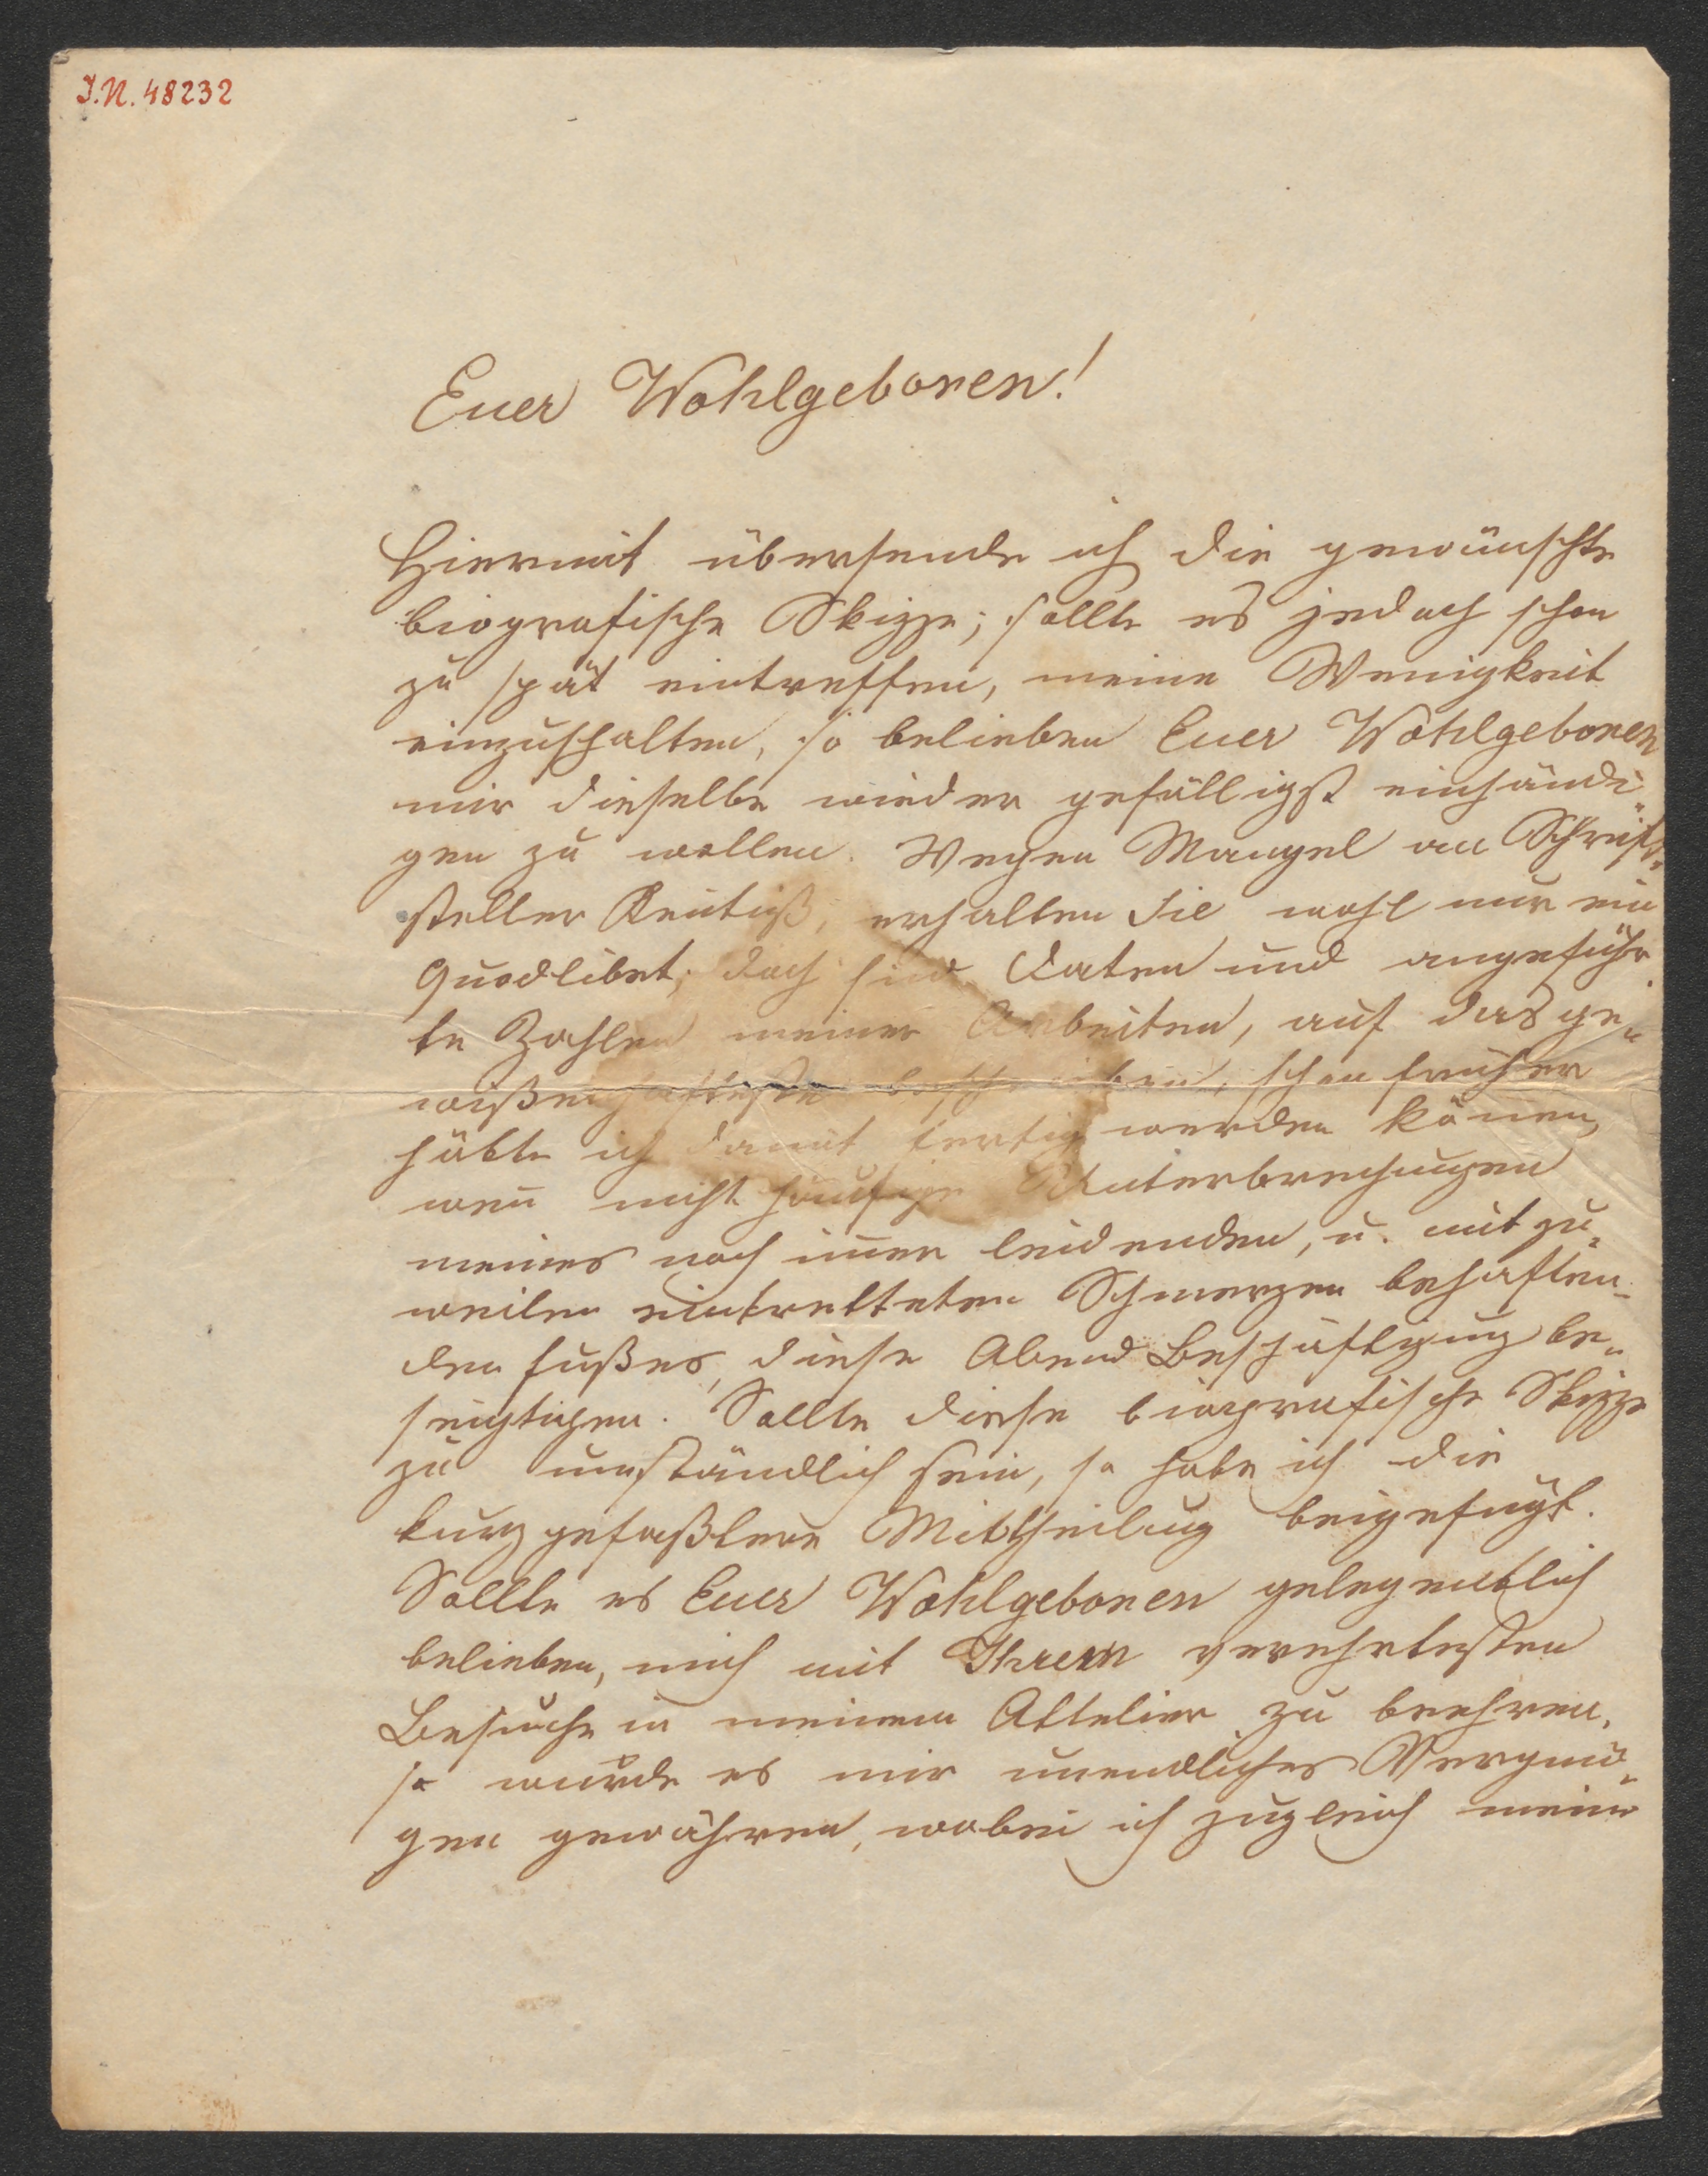 I.N. 48232
Euer Wohlgeboren!
Hiermit übersende ich die gewünschte
biografische Skizze; sollte es jedoch schon
zu spät eintreffen, meine Wenigkeit
einzuschalten, so belieben Euer Wohlgeboren
mir dieselbe wieder gefälligst einhändi-
gen zu wollen. Wegen Mangel an Schrift-
steller Kentniß, erhalten Sie wohl nur ein
Quodlibet, doch sind Daten und angeführ-
te Zahlen meiner Arbeiten, auf das ge-
wißenhafteste beschrieben, schon früher
hätte ich damit fertig werden könen,
wen̄ nicht häufige Unterbrechungen
meines noch im̄er leidenden, u. mit zu-
weilen eintretteten Schmerzen behaften-
den Fußes, diese Abend Beschäftigung be-
seigtigen. Sollte diese biografische Skizze
zu umständlich sein, so habe ich die
kurz gefaßtere Mittheilung beigefügt.
Sollte es Euer Wohlgeboren gelegentlich
belieben, mich mit Ihrem verehrtesten
Besuche in meinem Attelier zu beehren,
so würde es mir unendliches Vergnü-
gen gewähren, wobei ich zugleich meine